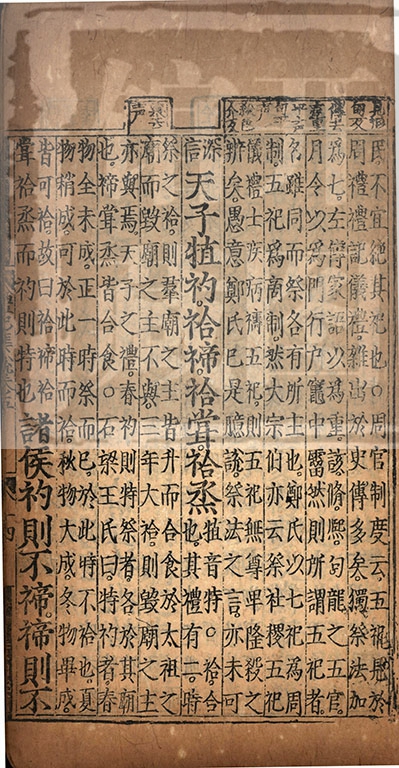 民不宜絕其祀也○周官制度云五祀見於
周禮禮記儀禮雜出於史傳多矣獨祭法加
爲七左傳家語以爲重該脩熙句龍之五官
月令以爲門行户竈中霤然則所謂五祀者
名雖同而祭各有所主也鄭氏以七祀爲周
制五祀爲商制然大宗伯亦云祭社稷五祀
儀禮士疾病禱五祀則五祀無尊卑隆殺之
辨矣愚意鄭氏已是臆說祭法之言亦未可
深信
天子犆礿祫禘祫嘗祫烝
犆音特○祫合
也其禮有二時
祭之祫則羣廟之主皆升而合食於太祖之
廟而毀廟之主不與三年大祫則毀廟之主
亦與焉天子之禮春礿則特祭者各於其廟
也禘嘗烝皆合食○石梁王氏曰特礿者春
物全未成正一時祭而已於此時不祫也夏
物稍成可於此時而祫秋物大成冬物畢成
皆可祫故曰祫禘祫
嘗祫烝而礿則特也
諸侯礿則不禘禘則不
四